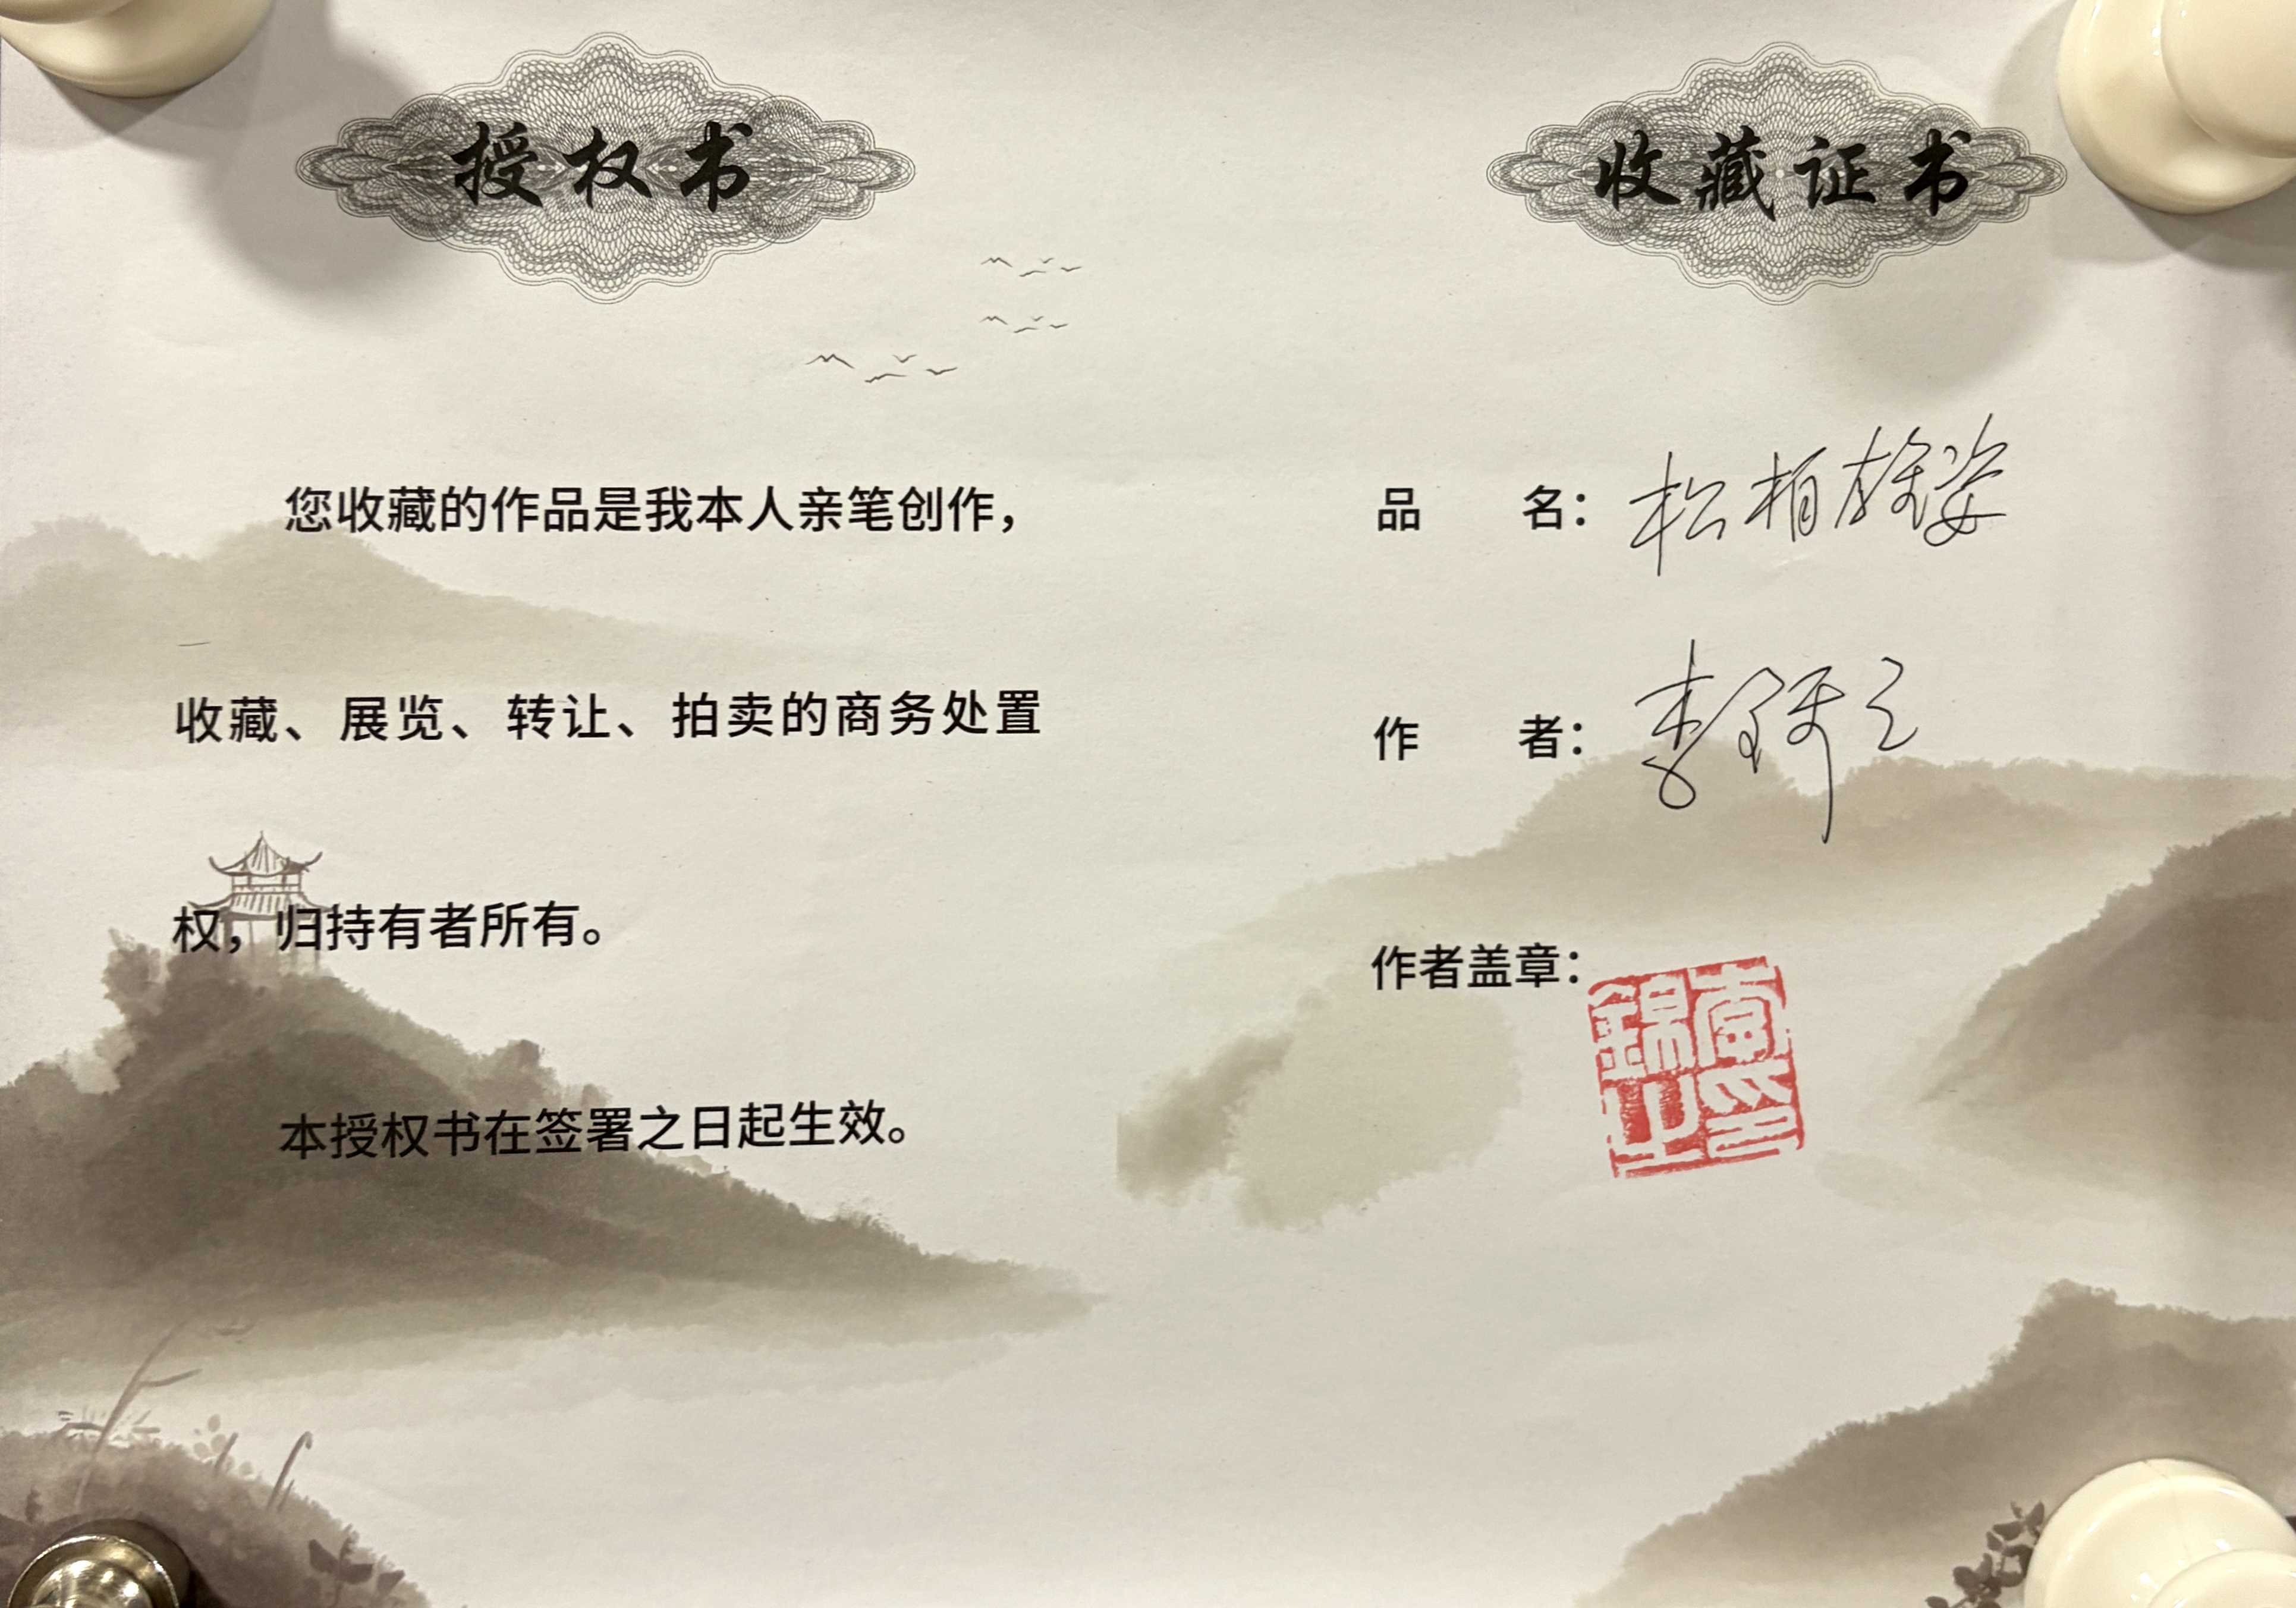 授权书
您收藏的作品是我本人亲笔创作，
收藏、展览、转让、拍卖的商务处置
权，归持有者所有。
本授权书在签署之日起生效。
收藏证书
品 名：松柏雄姿
作 者：李
作者盖章：